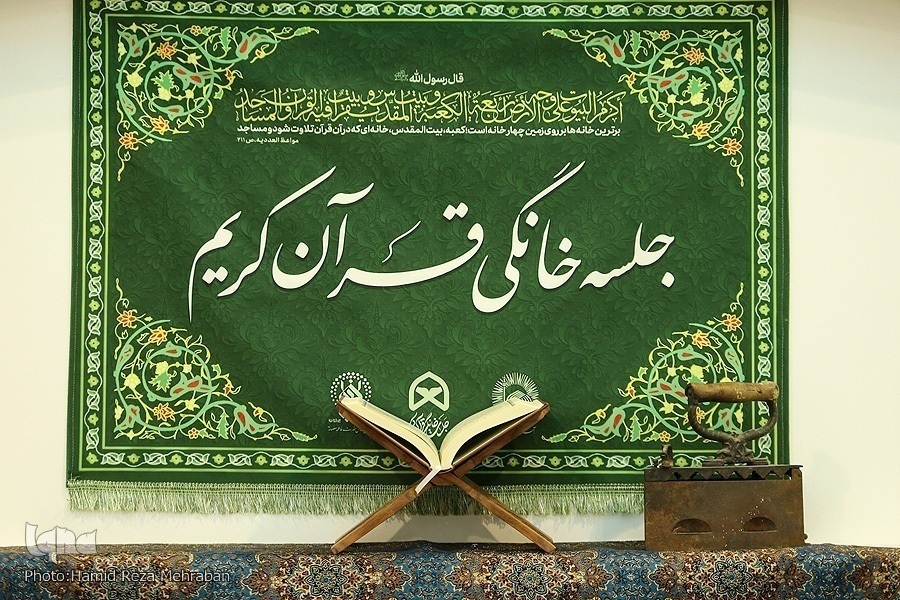 قال رسول الله ﷺ
اکرم البیوت علی وجه الارض اربعة الکعبة و بیت المقدس و بیت یقرا فیه القرآن و المساجد
برترین خانه‌ها بر روی زمین چهار خانه است: کعبه، بیت المقدس، خانه‌ای که در آن قرآن تلاوت شود و مساجد
مواعظ العددیه، ص ۲۱۱
جلسه خانگی قرآن کریم
iqna
Photo:Hamid Reza Mehraban